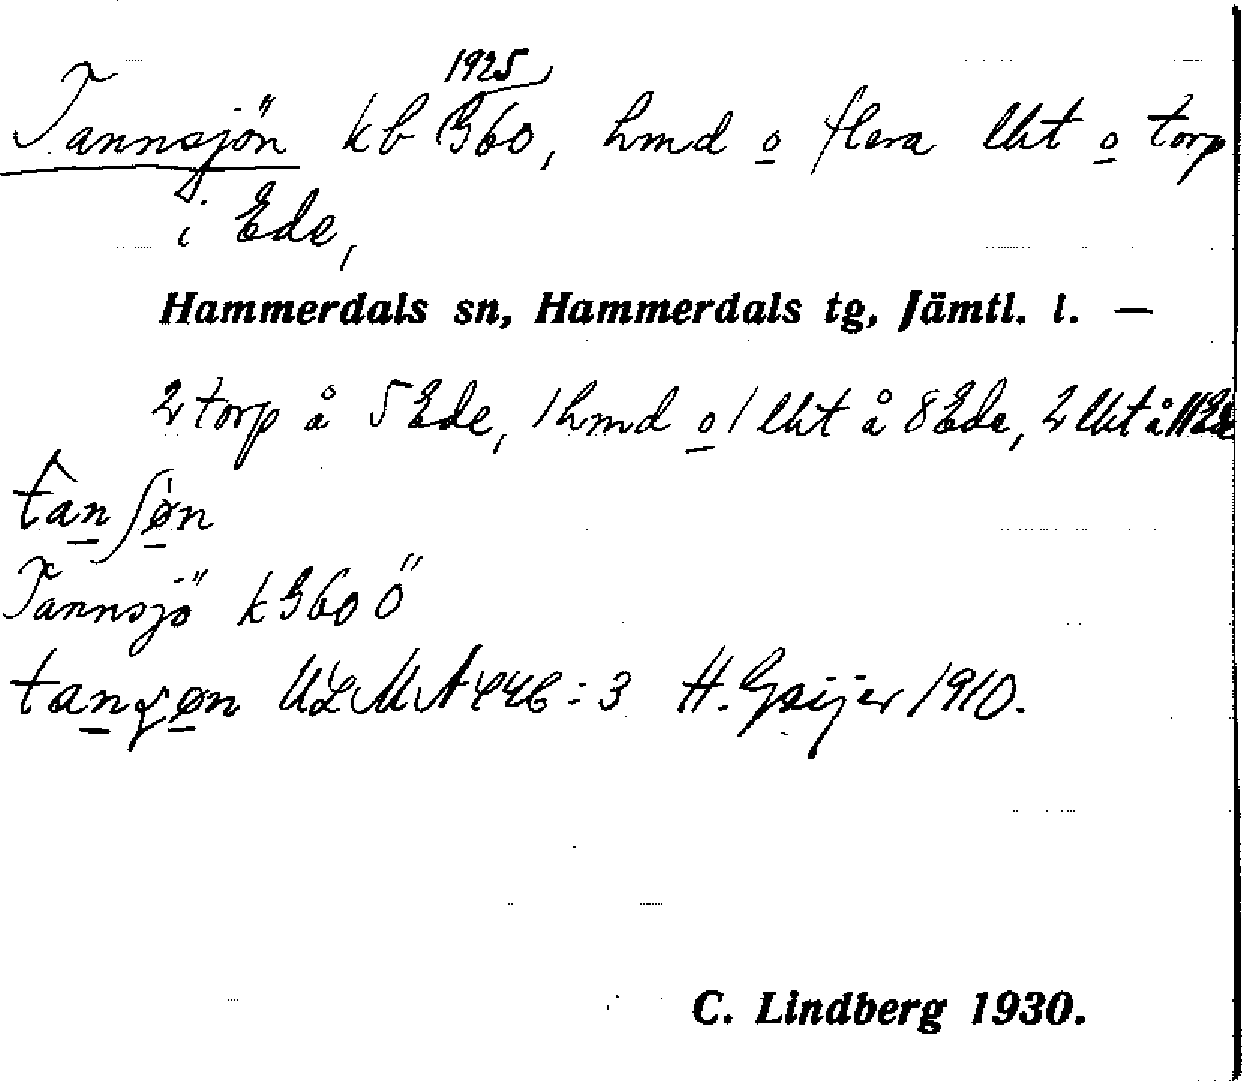 1925
Tannsjön kb G60, hmd o flera lht o torp
i Ede,
Hammerdals sn, Hammerdals tg, Jämtl. l. —
2 torp å 5 Ede, 1 hmd o 1 lht å 8 Ede, 2 lht å 11 Ede
tanʃøn
Tannsjö k G60 ö
tanʂøn ULMA 446:3 H. Geijer 1910.
C. Lindberg 1930.